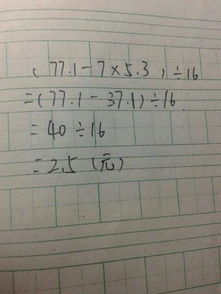 (77.1-7×5.3)÷16
=(77.1-37.1)÷16
=40÷16
=2.5(元)